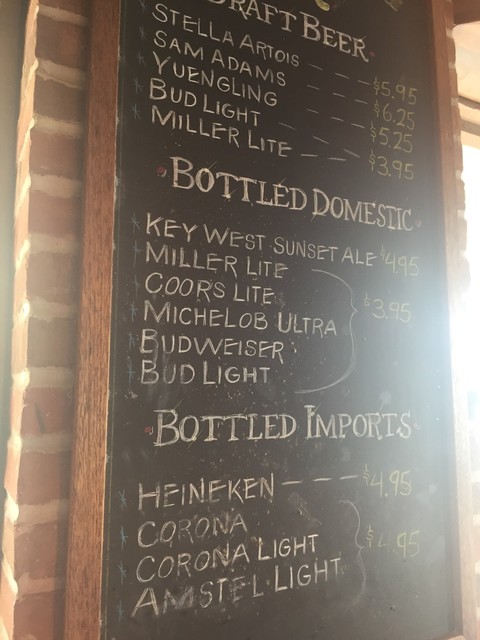 DRAFT BEER
STELLA ARTOIS --- $5.95
SAM ADAMS --- $6.25
YUENGLING --- $5.25
BUD LIGHT
MILLER LITE --- $3.95
BOTTLED DOMESTIC
KEY WEST SUNSET ALE $4.95
MILLER LITE
COORS LITE
$3.95
MICHELOB ULTRA
BUDWEISER
BUD LIGHT
BOTTLED IMPORTS
HEINEKEN --- $4.95
CORONA
CORONA LIGHT $4.95
AMSTEL LIGHT